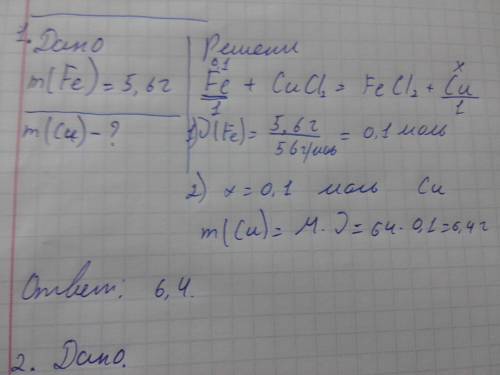 1. Дано
m(Fe) = 5,6 г
m(Cu) - ?
Решени
0,1 x
Fe + CuCl₂ = FeCl₂ + Cu
1 1
1) ν(Fe) = 5,6 г / 56 г/моль = 0,1 моль
2) x = 0,1 моль Cu
m(Cu) = M · ν = 64 · 0,1 = 6,4 г
Ответ: 6,4.
2. Дано.